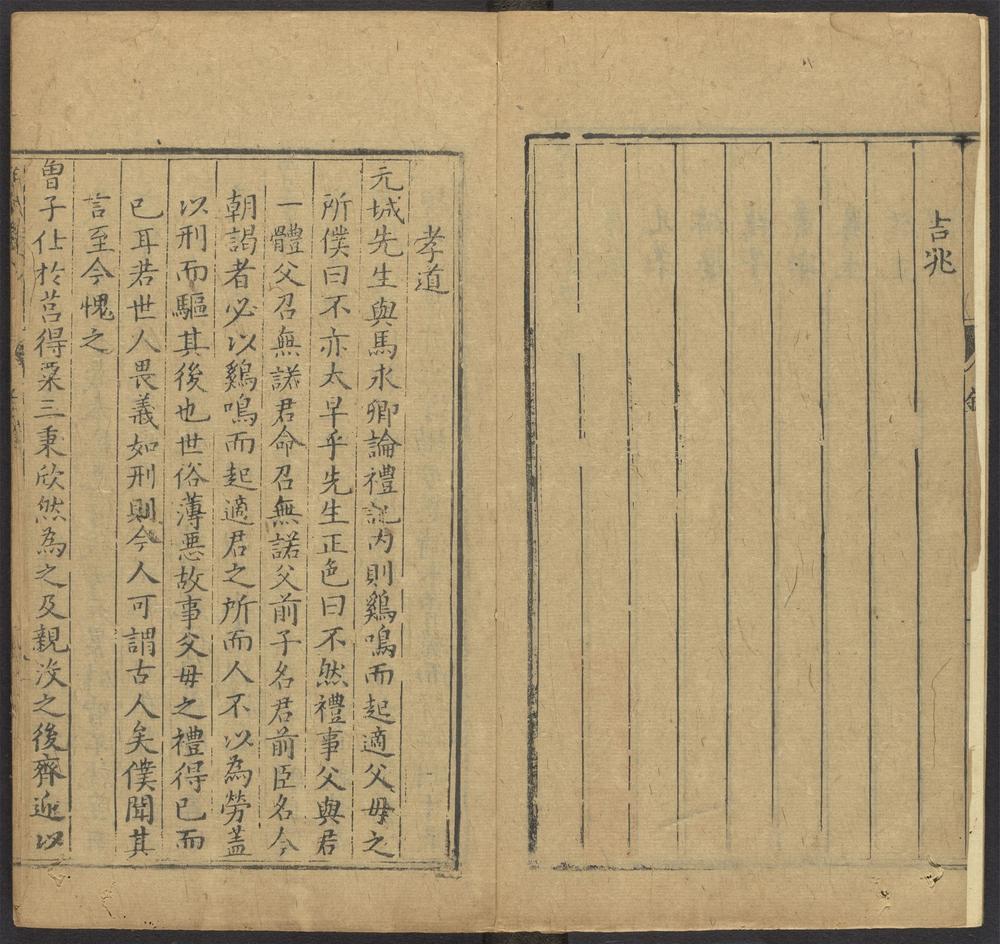 吉兆
孝道
元城先生與馬永卿論禮記內則鷄鳴而起適父母之
所僕曰不亦太早乎先生正色曰不然禮事父與君
一體父召無諾君命召無諾父前子名君前臣名今
朝謁者必以鷄鳴而起適君之所而人不以為勞盖
以刑而驅其後也世俗薄惡故事父母之禮得已而
已耳若世人畏義如刑則今人可謂古人矣僕聞其
言至今愧之
曾子仕於莒得粟三秉欣然為之及親没之後齊迎以